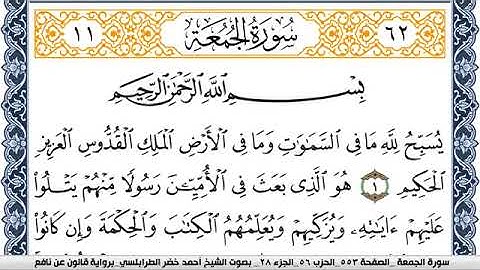 ٦٢ سُورَةُ الجُمُعَة ١١
بِسْمِ اللَّهِ الرَّحْمَٰنِ الرَّحِيمِ
يُسَبِّحُ لِلَّهِ مَا فِي السَّمَٰوَٰتِ وَمَا فِي الْأَرْضِ الْمَلِكِ الْقُدُّوسِ الْعَزِيزِ
الْحَكِيمِ ١ هُوَ الَّذِي بَعَثَ فِي الْأُمِّيِّـۧنَ رَسُولًا مِّنْهُمْ يَتْلُواْ
عَلَيْهِمْ ءَايَٰتِهِۦ وَيُزَكِّيهِمْ وَيُعَلِّمُهُمُ الْكِتَٰبَ وَالْحِكْمَةَ وَإِن كَانُواْ
سورة الجمعة _ الصفحة ٥٥٣_الحزب ٥٦_الجزء ٢٨_ بصوت الشيخ أحمد خضر الطرابلسي_برواية قالون عن نافع